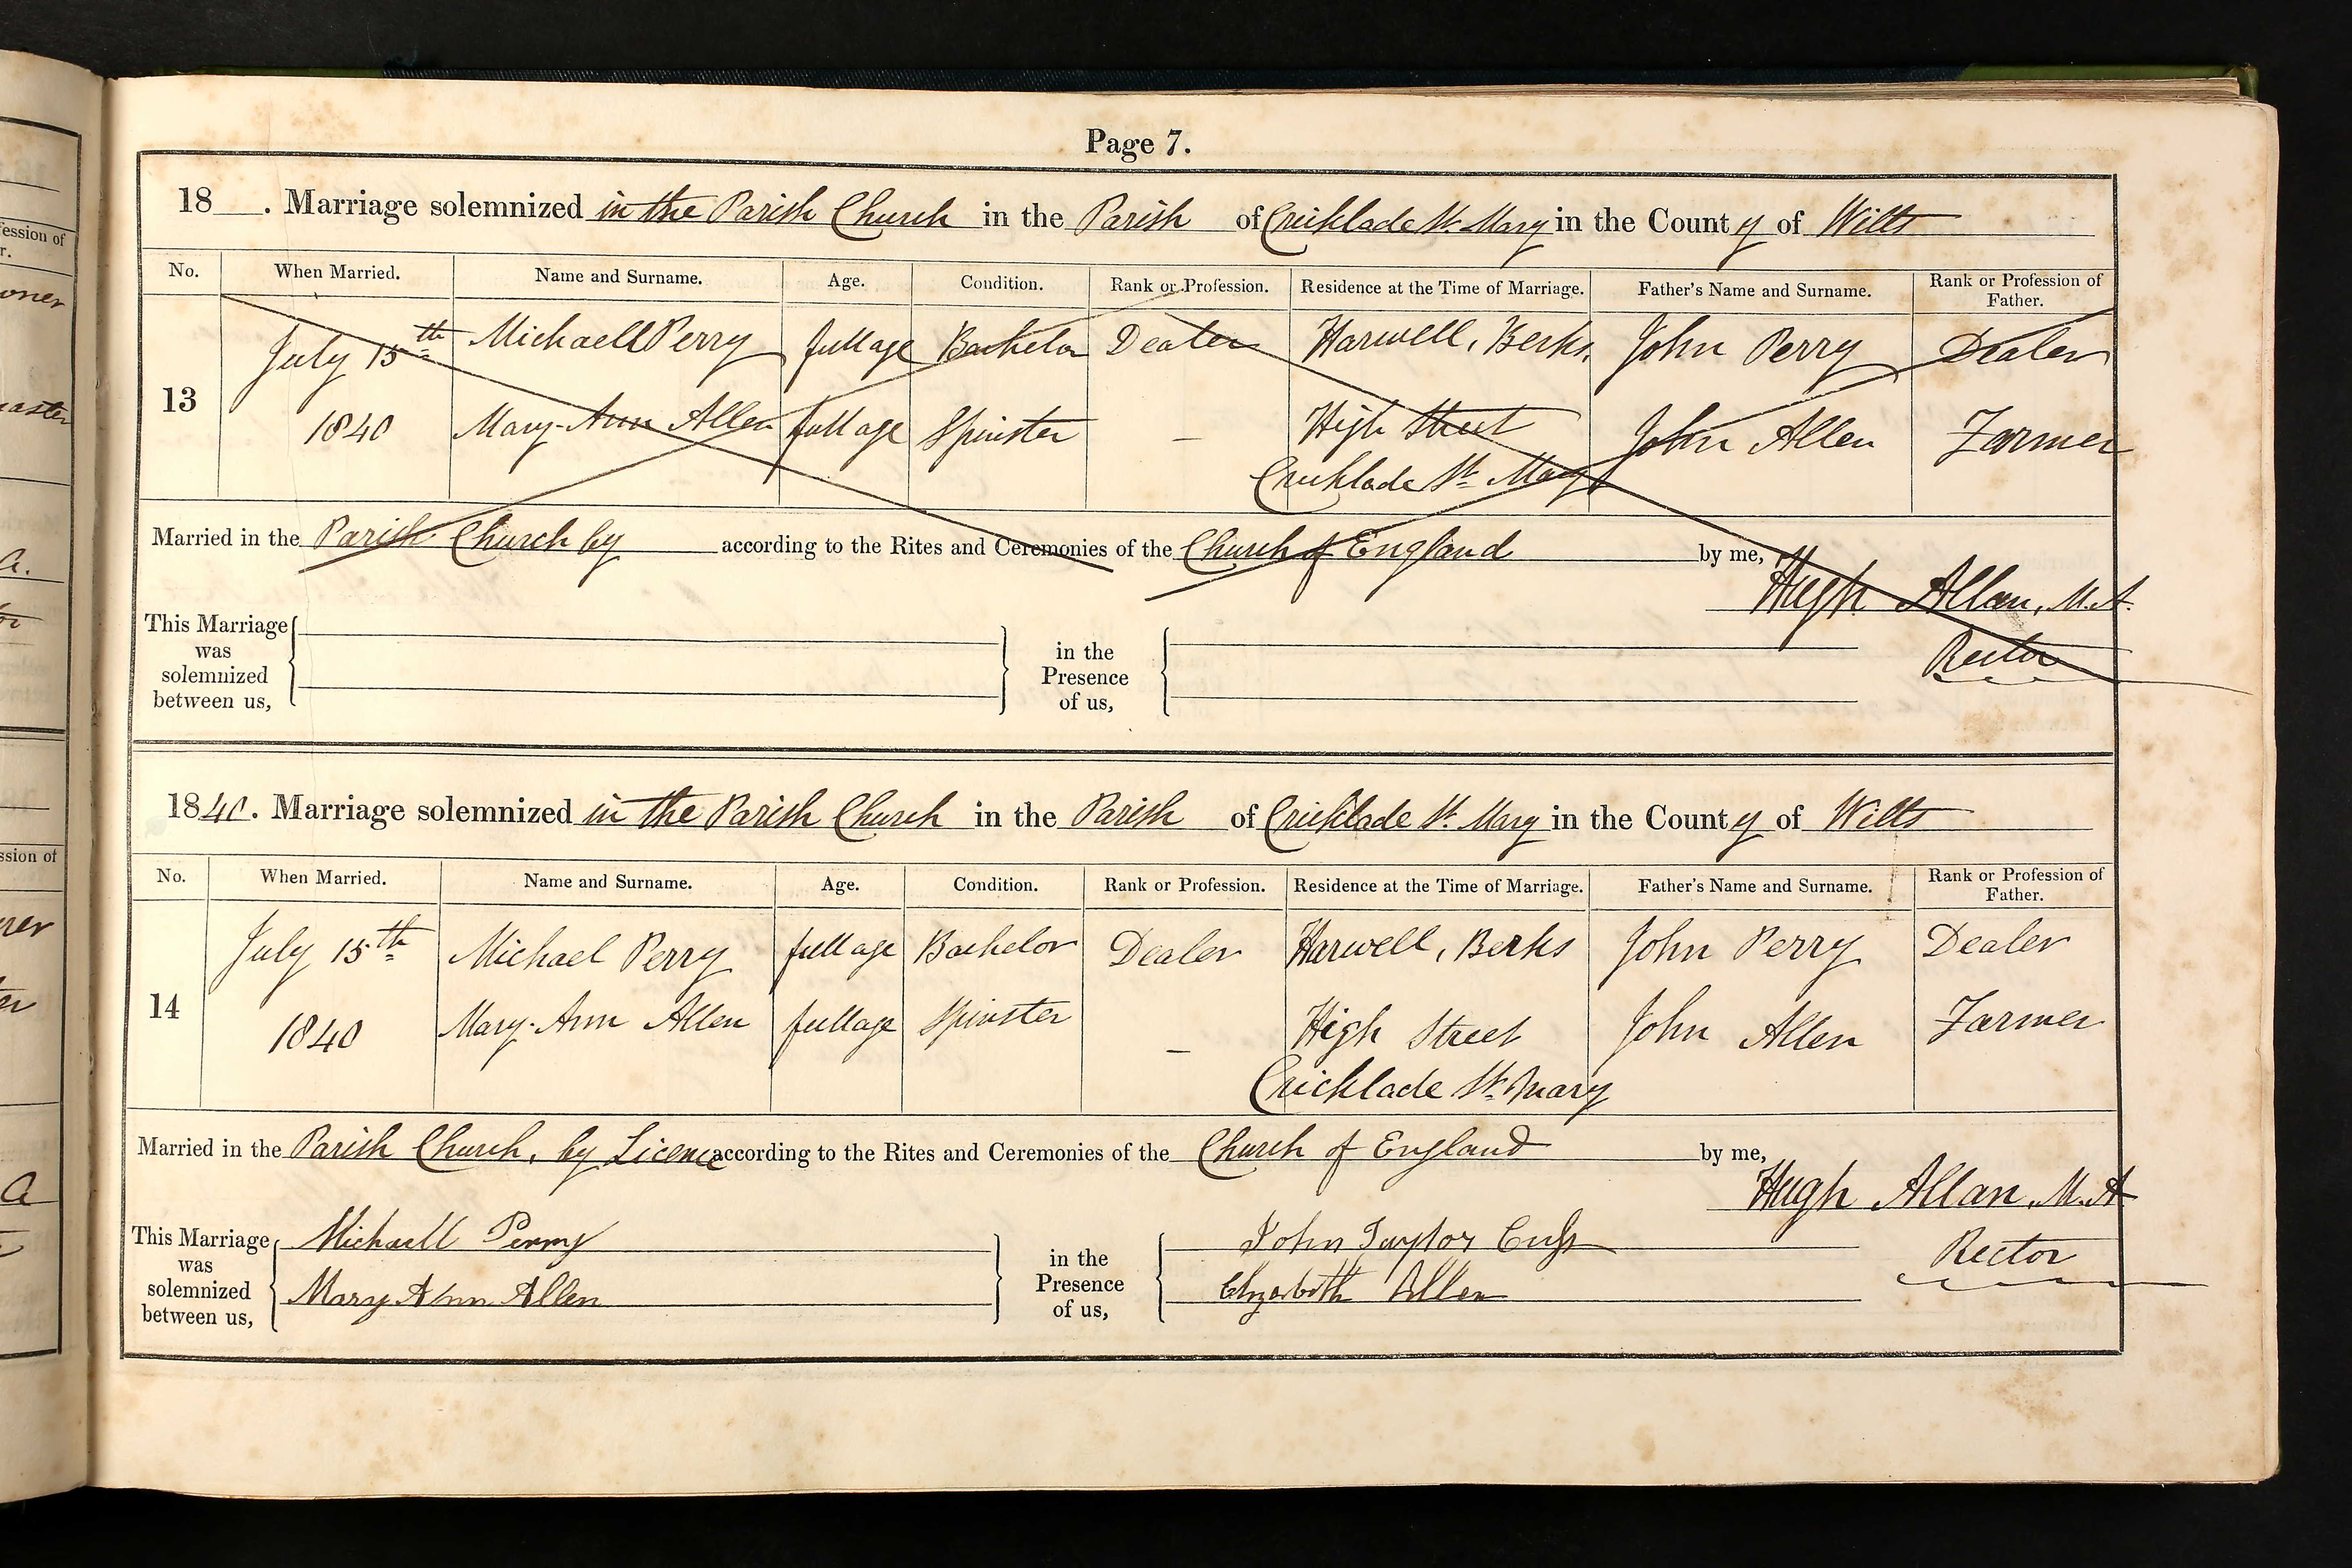 Page 7.
18 . Marriage solemnized in the Parish Church in the Parish of Cricklade St. Mary in the County of Wilts
No. When Married. Name and Surname. Age. Condition. Rank or Profession. Residence at the Time of Marriage. Father's Name and Surname. Rank or Profession of Father.
July 15th Michaell Perry full age Bachelor Dealer Harwell, Berks, John Perry Dealer
13
1840 Mary-Ann Allen full age Spinster – High Street John Allen Farmer
Cricklade St. Mary
Married in the Parish Church by according to the Rites and Ceremonies of the Church of England by me,
Hugh Allan, M.A.
Rector
This Marriage was solemnized between us,
in the Presence of us,
1840. Marriage solemnized in the Parish Church in the Parish of Cricklade St. Mary in the County of Wilts
No. When Married. Name and Surname. Age. Condition. Rank or Profession. Residence at the Time of Marriage. Father's Name and Surname. Rank or Profession of Father.
July 15th Michael Perry full age Bachelor Dealer Harwell, Berks John Perry Dealer
14
1840 Mary-Ann Allen full age Spinster – High Street John Allen Farmer
Cricklade St. Mary
Married in the Parish Church, by Licence according to the Rites and Ceremonies of the Church of England by me,
Hugh Allan, M.A.
Rector
This Marriage was solemnized between us,
Michaell Perry
Mary Ann Allen
in the Presence of us,
John Taylor Cuss
Elizabeth Allen